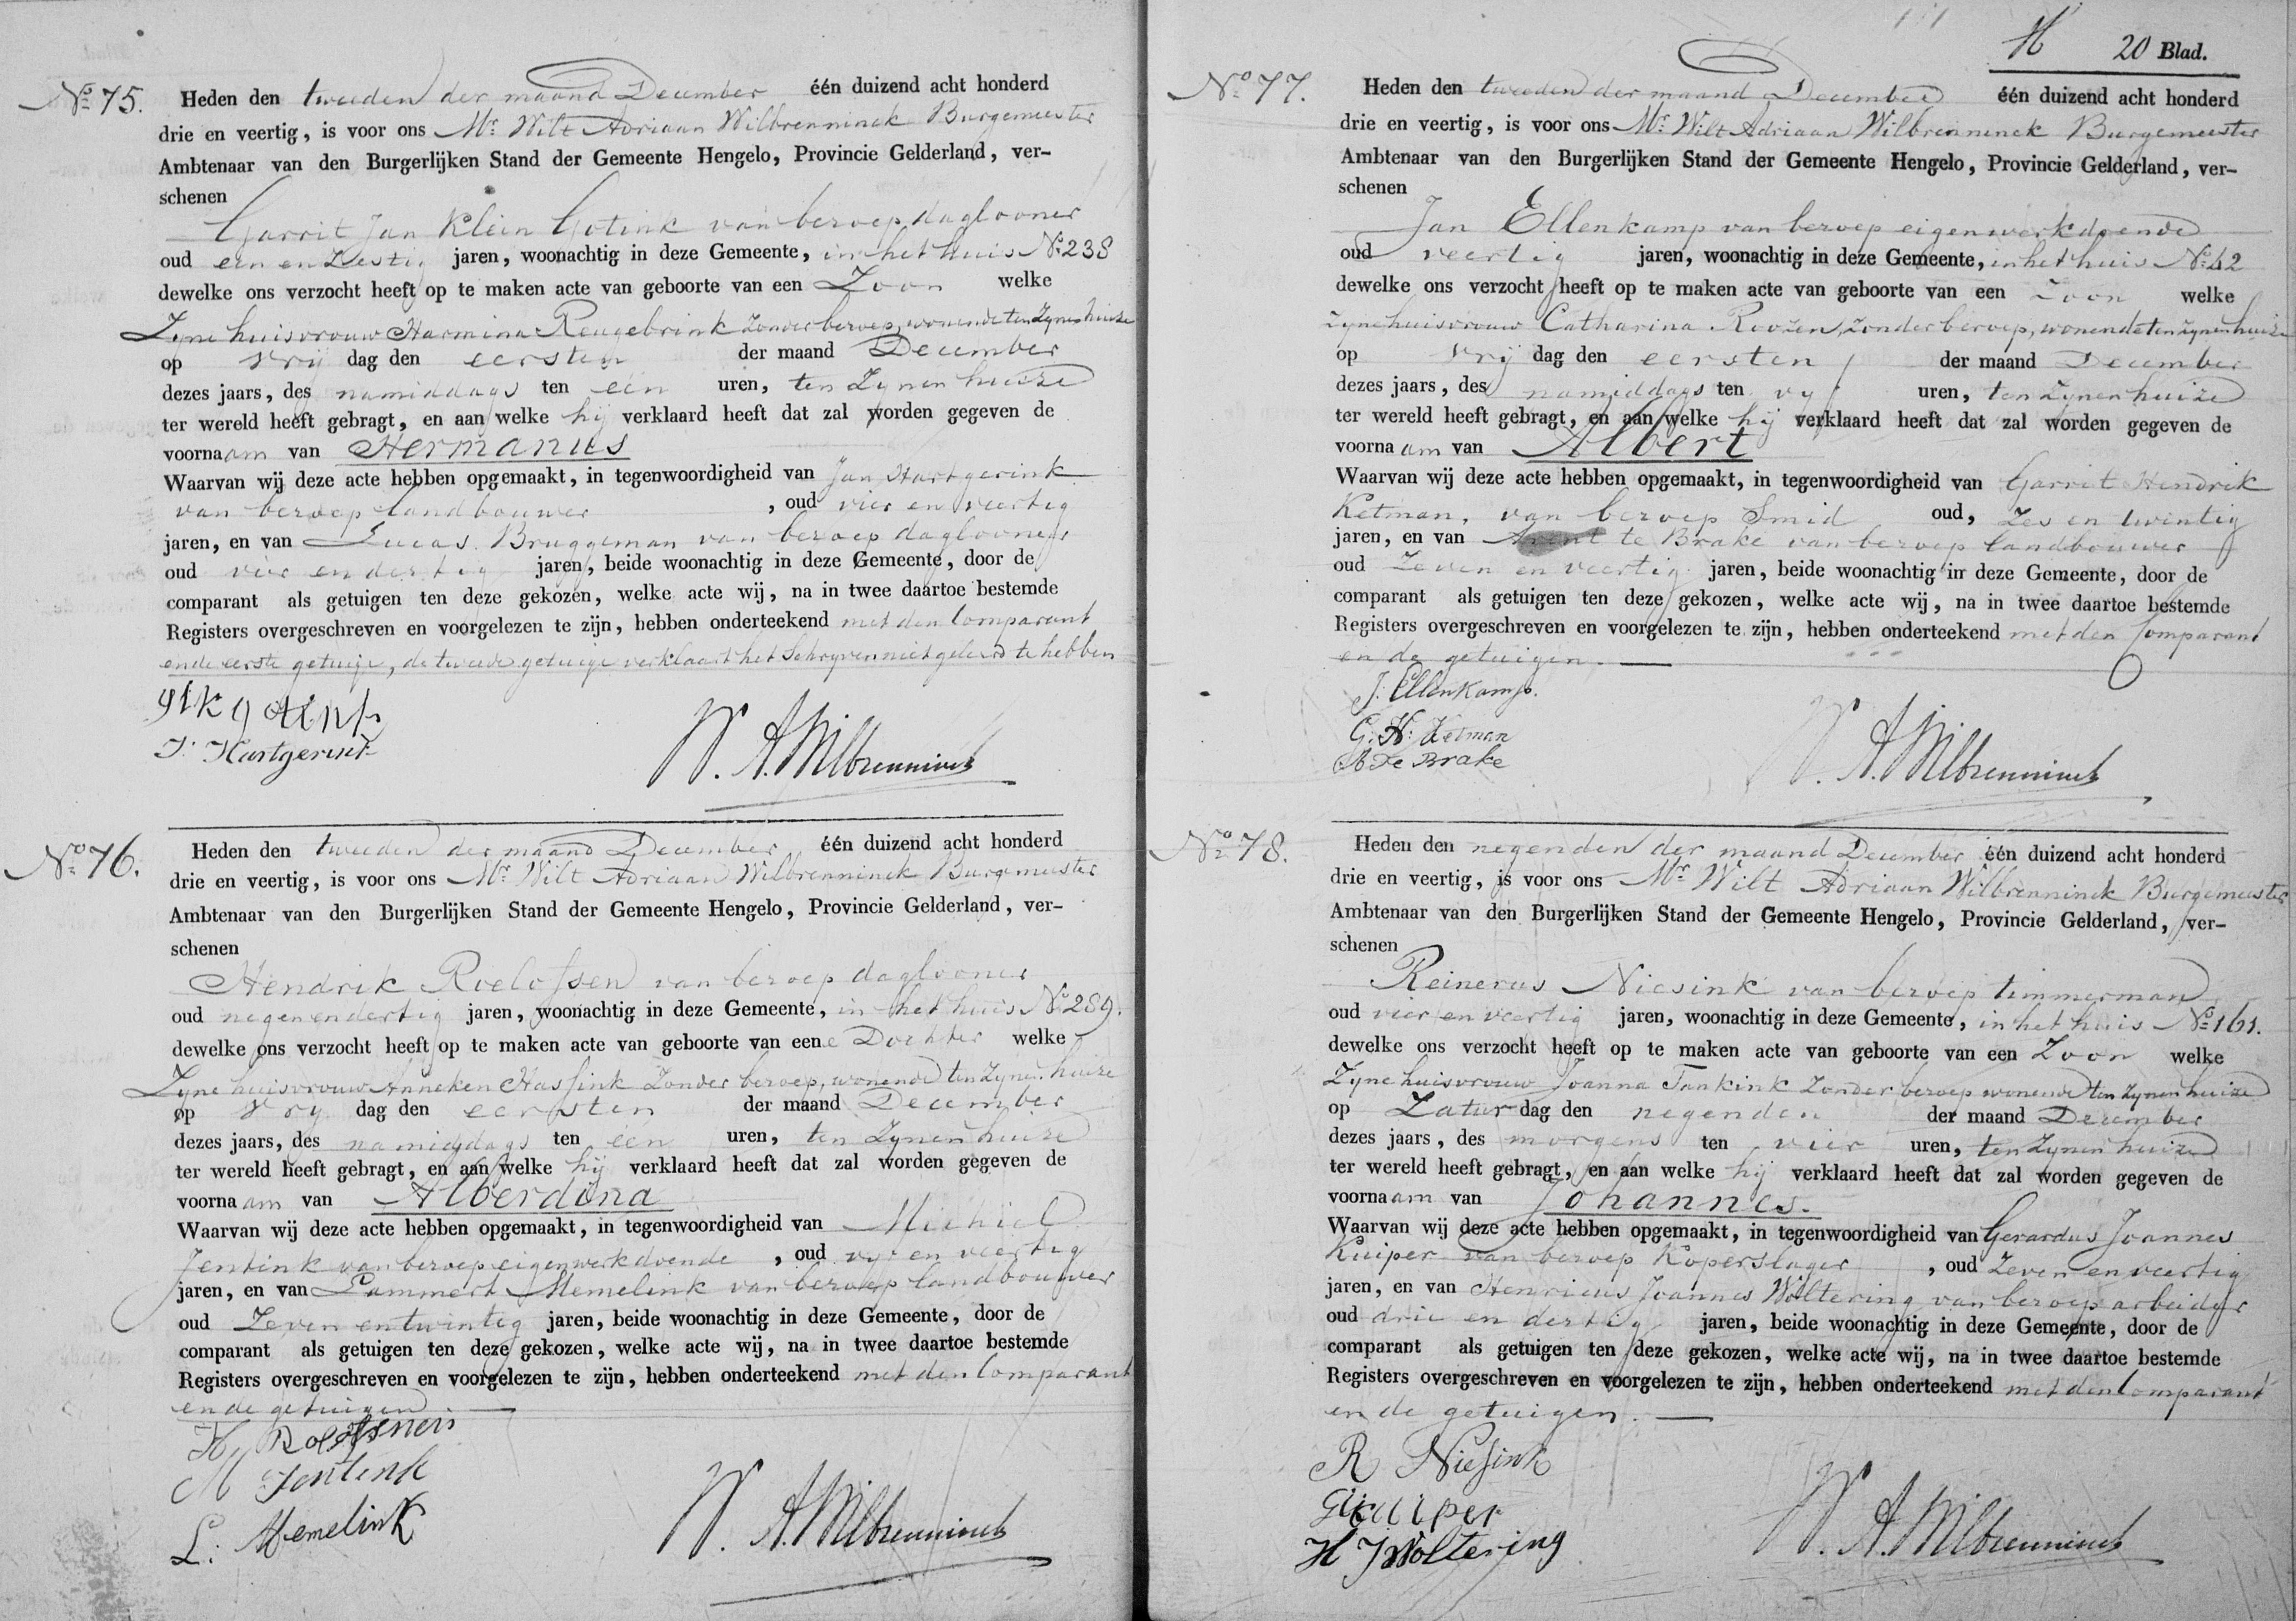 No 75.
Heden den tweeden der maand December één duizend acht honderd
drie en veertig, is voor ons Mr. Wilt Adriaan Wilbrenninck Burgemeester
Ambtenaar van den Burgerlijken Stand der Gemeente Hengelo, Provincie Gelderland, ver-
schenen
Garrit Jan Klein Gotink van beroep daglooner
oud een en Zestig jaren, woonachtig in deze Gemeente, in het huis No 238
dewelke ons verzocht heeft op te maken acte van geboorte van een Zoon welke
Zyne huisvrouw Harmina Reugebrink Zonder beroep, wonende ten Zynen huize
op Vrij dag den eersten der maand December
dezes jaars, des namiddags ten één uren, ten Zynen huize
ter wereld heeft gebragt, en aan welke hij verklaard heeft dat zal worden gegeven de
voornaam van Hermanus
Waarvan wij deze acte hebben opgemaakt, in tegenwoordigheid van Jan Hartgerink
van beroep landbouwer, oud vier en veertig
jaren, en van Lucas Bruggeman van beroep daglooner
oud vier en dertig jaren, beide woonachtig in deze Gemeente, door de
comparant als getuigen ten deze gekozen, welke acte wij, na in twee daartoe bestemde
Registers overgeschreven en voorgelezen te zijn, hebben onderteekend met den Comparant
en de eerste getuige, de tweede getuige verklaart het Schryven niet geleerd te hebben
g i k gotink
J. Hartgerink
W. A. Wilbrenninck
No 76.
Heden den tweeden der maand December één duizend acht honderd
drie en veertig, is voor ons Mr. Wilt Adriaan Wilbrenninck Burgemeester
Ambtenaar van den Burgerlijken Stand der Gemeente Hengelo, Provincie Gelderland, ver-
schenen
Hendrik Roelofsen van beroep daglooner
oud negen en dertig jaren, woonachtig in deze Gemeente, in het huis No 289.
dewelke ons verzocht heeft op te maken acte van geboorte van eene Dochter welke
Zyne huisvrouw Anneken Hassink Zonder beroep, wonende ten Zynen huize
op Vry dag den eersten der maand December
dezes jaars, des namiddags ten één uren, ten Zynen huize
ter wereld heeft gebragt, en aan welke hij verklaard heeft dat zal worden gegeven de
voornaam van Alberdina
Waarvan wij deze acte hebben opgemaakt, in tegenwoordigheid van Michiel
Jentink van beroep eigenwerkdoende, oud vyf en veertig
jaren, en van Lammert Memelink van beroep landbouwer
oud Zeven en twintig jaren, beide woonachtig in deze Gemeente, door de
comparant als getuigen ten deze gekozen, welke acte wij, na in twee daartoe bestemde
Registers overgeschreven en voorgelezen te zijn, hebben onderteekend met den Comparant
en de getuigen
H Roelofsen
M Jentink
L. Memelink
W. A. Wilbrenninck
H 20 Blad.
No 77.
Heden den tweeden der maand December één duizend acht honderd
drie en veertig, is voor ons Mr. Wilt Adriaan Wilbrenninck Burgemeester
Ambtenaar van den Burgerlijken Stand der Gemeente Hengelo, Provincie Gelderland, ver-
schenen
Jan Ellenkamp van beroep eigenwerkdoende
oud veertig jaren, woonachtig in deze Gemeente, in het huis No 42
dewelke ons verzocht heeft op te maken acte van geboorte van een Zoon welke
zyne huisvrouw Catharina Roozen, Zonder beroep, wonende ten zynen huize
op Vrij dag den eersten der maand December
dezes jaars, des namiddags ten vyf uren, ten Zynen huize
ter wereld heeft gebragt, en aan welke hij verklaard heeft dat zal worden gegeven de
voornaam van Albert
Waarvan wij deze acte hebben opgemaakt, in tegenwoordigheid van Garrit Hendrik
Ketman, van beroep Smid oud, Zes en twintig
jaren, en van Arent te Brake van beroep landbouwer
oud Zeven en veertig jaren, beide woonachtig in deze Gemeente, door de
comparant als getuigen ten deze gekozen, welke acte wij, na in twee daartoe bestemde
Registers overgeschreven en voorgelezen te zijn, hebben onderteekend met den Comparant
en de getuigen.
J. Ellenkamp.
G. H. Ketman
A Te Brake
W. A. Wilbrenninck
No 78.
Heden den negenden der maand December één duizend acht honderd
drie en veertig, is voor ons Mr. Wilt Adriaan Wilbrenninck Burgemeester
Ambtenaar van den Burgerlijken Stand der Gemeente Hengelo, Provincie Gelderland, ver-
schenen
Reinerus Niesink van beroep timmerman
oud vier en veertig jaren, woonachtig in deze Gemeente, in het huis No 161.
dewelke ons verzocht heeft op te maken acte van geboorte van een Zoon welke
Zyne huisvrouw Joanna Tankink Zonder beroep wonende ten Zynen huize
op Zatur dag den negenden der maand December
dezes jaars, des morgens ten vier uren, ten Zynen huize
ter wereld heeft gebragt, en aan welke hij verklaard heeft dat zal worden gegeven de
voornaam van Johannes.
Waarvan wij deze acte hebben opgemaakt, in tegenwoordigheid van Gerardus Joannes
Kuiper van beroep Koperslager, oud Zeven en veertig
jaren, en van Henricus Joannes Woltering van beroep arbeider
oud drie en dertig jaren, beide woonachtig in deze Gemeente, door de
comparant als getuigen ten deze gekozen, welke acte wij, na in twee daartoe bestemde
Registers overgeschreven en voorgelezen te zijn, hebben onderteekend met den Comparant
en de getuigen.
R Niesink
G J Kuiper
H J Woltering
W. A. Wilbrenninck